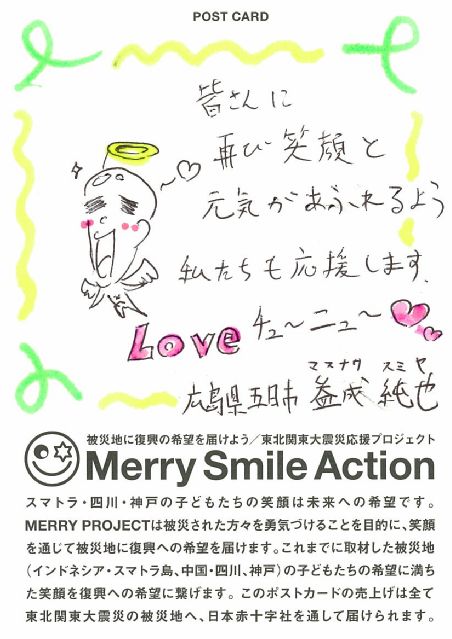 POST CARD
皆さんに
再び笑顔と
元気があふれるよう
私たちも応援します.
Love チュ〜ニュ〜
マスナリ スミヤ
広島県五日市 益成 純也
被災地に復興の希望を届けよう／東北関東大震災応援プロジェクト
Merry Smile Action
スマトラ・四川・神戸の子どもたちの笑顔は未来への希望です。
MERRY PROJECTは被災された方々を勇気づけることを目的に、笑顔
を通じて被災地に復興への希望を届けます。これまでに取材した被災地
（インドネシア・スマトラ島、中国・四川、神戸）の子どもたちの希望に満ち
た笑顔を復興への希望に繋げます。このポストカードの売上げは全て
東北関東大震災の被災地へ、日本赤十字社を通して届けられます。